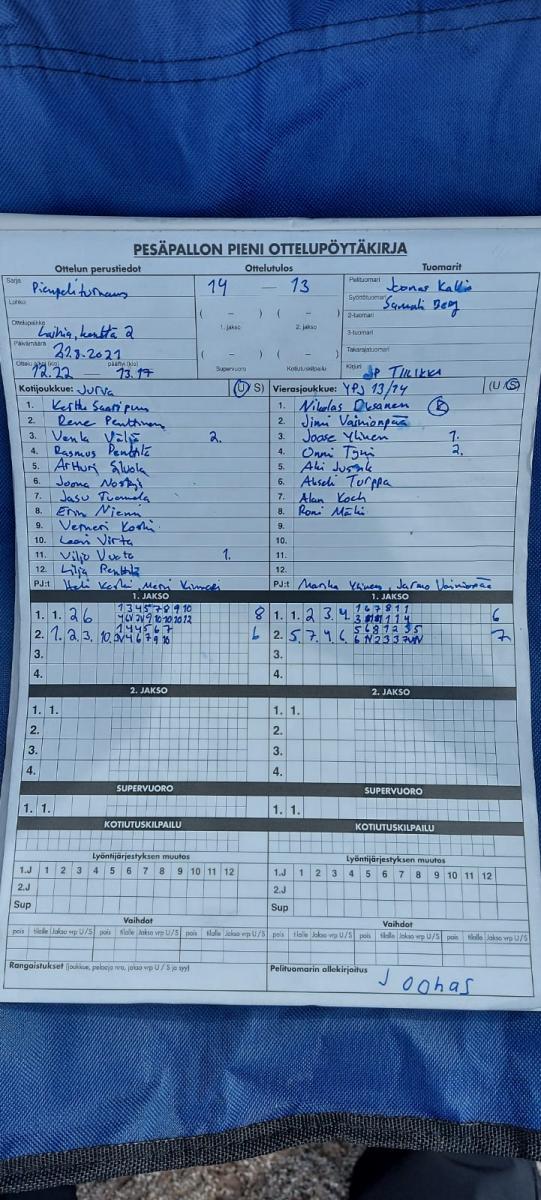 PESÄPALLON PIENI OTTELUPÖYTÄKIRJA
Ottelun perustiedot Ottelutulos Tuomarit
Sarja Pienpeliturnaus 14 – 13 Pelituomari Joonas Kallio
Lohko Syöttötuomari Samuli Berg
( – ) ( – ) 2-tuomari
Ottelupaikka Laihia, kenttä 2 1. jakso 2. jakso 3-tuomari
Päivämäärä 22.8.2021 ( – ) Takarajatuomari
Ottelu alkoi (klo) 12.22 – päättyi (klo) 13.17 Supervuoro Kotiutuskilpailu Kirjuri JP Tiilikka
Kotijoukkue: Jurva (U S) Vierasjoukkue: YPJ 13/14 (U / S)
1. Kerttu 1. Nikolas
2. Rene Penttinen 2. Jimi Vainionpää
3. Venla Väljä 2. 3. Joose Ylinen 1.
4. Rasmus Penttilä 4. Onni Tyni 2.
5. Artturi 5. Aki
6. Joona 6. Akseli Turppa
7. Jasu Tuomela 7. Alan Koch
8. Erin Niemi 8. Roni Mäki
9. Verneri Koski 9.
10. Leevi Virta 10.
11. Viljo 1. 11.
12. Lilja Penttilä 12.
PJ:t Heli Koski, Mervi PJ:t Marika Ylinen, Jarmo Vainionpää
1. JAKSO 1. JAKSO
1. 1. 2 6 1 3 4 5 7 8 9 10 8 1. 1. 2 3. 4. 1 6 7 8 1 1 6
2. 1. 2. 3. 10. 1 4 4 5 6 7 6 2. 5. 7. 4 6. 5 6 8 1 2 3 5 7
3. 3.
4. 4.
2. JAKSO 2. JAKSO
1. 1. 1. 1.
2. 2.
3. 3.
4. 4.
SUPERVUORO SUPERVUORO
1. 1. 1. 1.
KOTIUTUSKILPAILU KOTIUTUSKILPAILU
Lyöntijärjestyksen muutos Lyöntijärjestyksen muutos
1.J 1 2 3 4 5 6 7 8 9 10 11 12 1.J 1 2 3 4 5 6 7 8 9 10 11 12
2.J 2.J
Sup Sup
Vaihdot Vaihdot
pois tilalle Jakso vrp U/S pois tilalle Jakso vrp U/S pois tilalle Jakso vrp U/S pois tilalle Jakso vrp U/S pois tilalle Jakso vrp U/S pois tilalle Jakso vrp U/S
Rangaistukset (joukkue, pelaaja nro, jakso vrp U / S ja syy) Pelituomarin allekirjoitus
Joonas